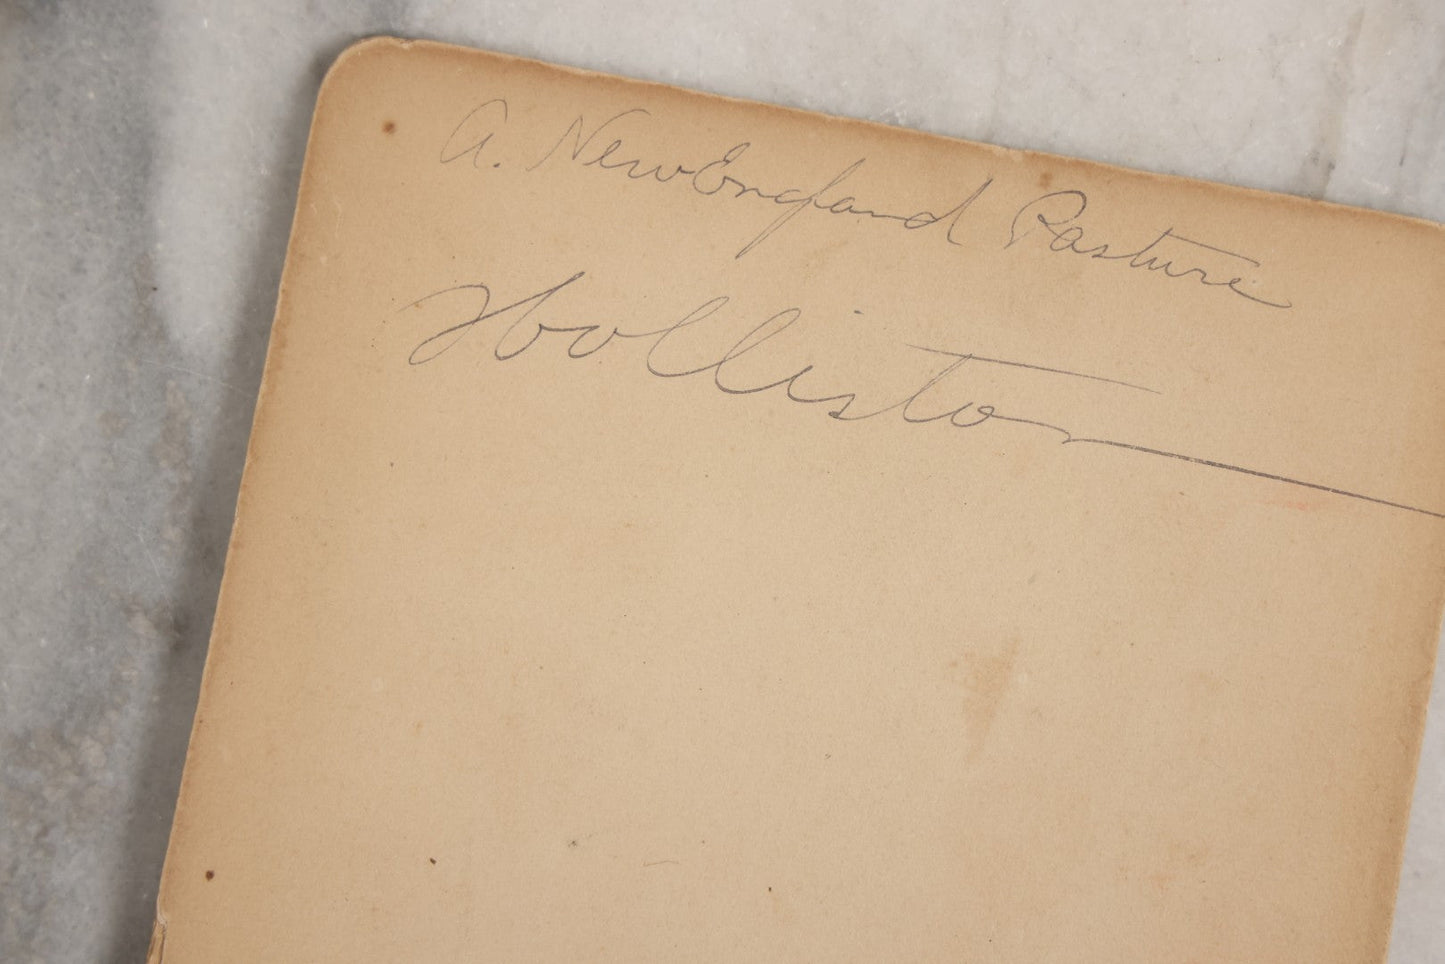 A. New England Pasture
Holliston